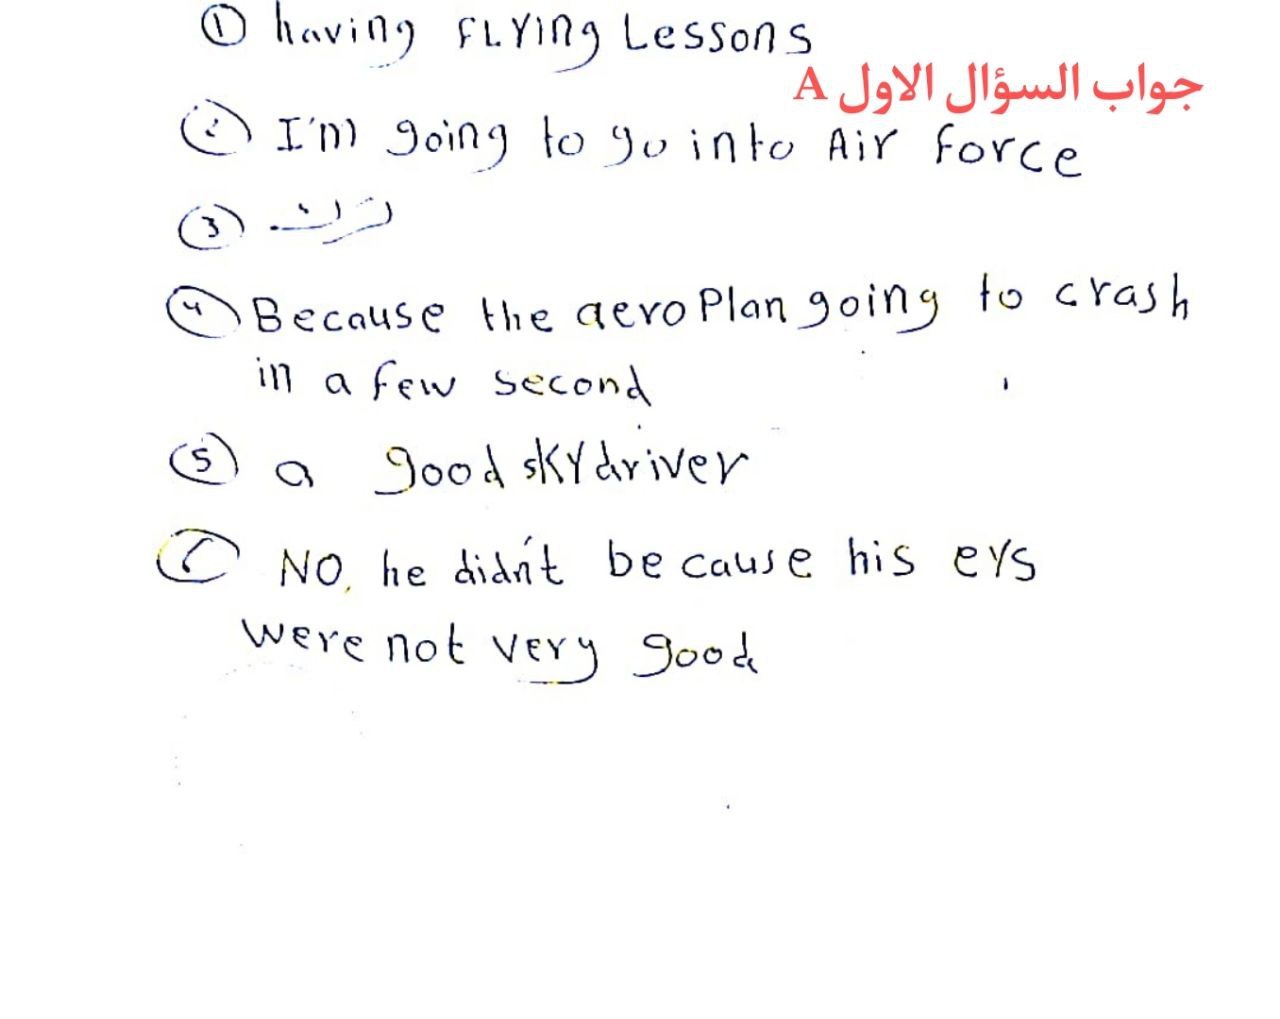 ① having FLYing Lessons
جواب السؤال الاول A
② I'm going to go into Air force
③ ترك
④ Because the aeroPlan going to crash
in a few second
⑤ a good sKYdriver
⑥ NO, he didn't because his eYs
were not very good